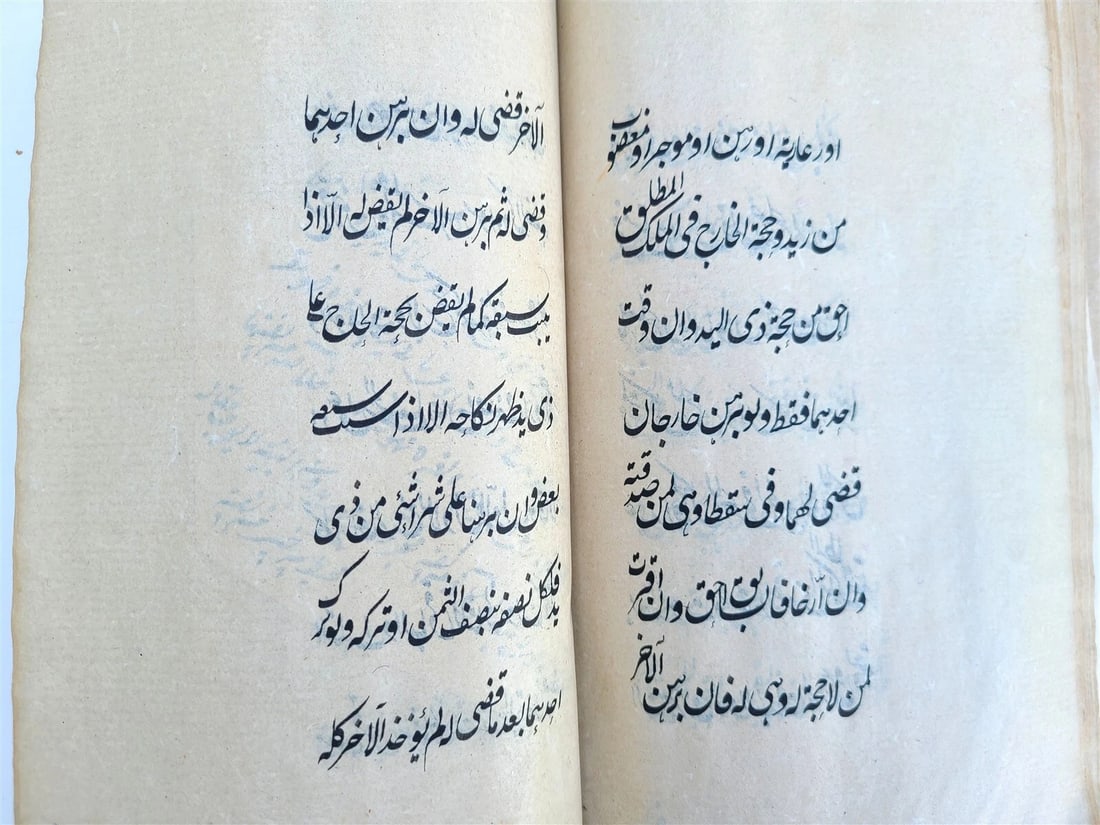 او رعاية او رهن او موجر او مغصوب
من زيد و حجة الخارج فى الملك المطلق
احق من حجة ذى اليد وان وقت
احدهما فقط ولو برهن خارجان
قضى لهما وفى سقطا وهى لمن صدقته
وان ارّخا فالسابق احق وان اقرت
لمن لا حجة له وهى له فان برهن الآخر
الآخر قضى له وان برهن احدهما
وقضى له ثم برهن الآخر لم يقض له الّا اذا
سبقه كما لم يقض بحجة الخارج على
ذى يد ظهر نكاحه الا اذا سبقه
بعض وان برهنا على شراء شئى من ذى
يد فلكل نصفه بنصف الثمن او تركه ولو ترك
احدهما بعد ما قضى له لم يؤخذ الآخر كله